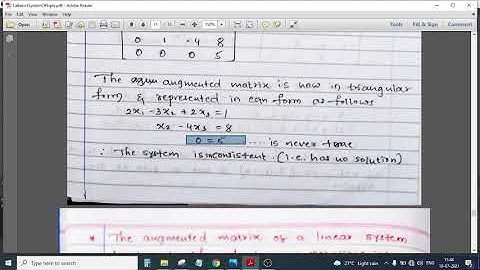 LabaceSystemOfEqns.pdf - Adobe Reader
File Edit View Window Help
Tools Fill & Sign Comment
0 1 -4 8
0 0 0 5
The augmented matrix is now in triangular
form & represented in eqn form as follows
2x₁ -3x₂ + 2x₃ = 1
x₂ - 4x₃ = 8
0 = 5 ..... is never true
∴ The system is inconsistent (i.e. has no solution)
* The augmented matrix of a linear system
Type here to search
27°C Light rain ENG